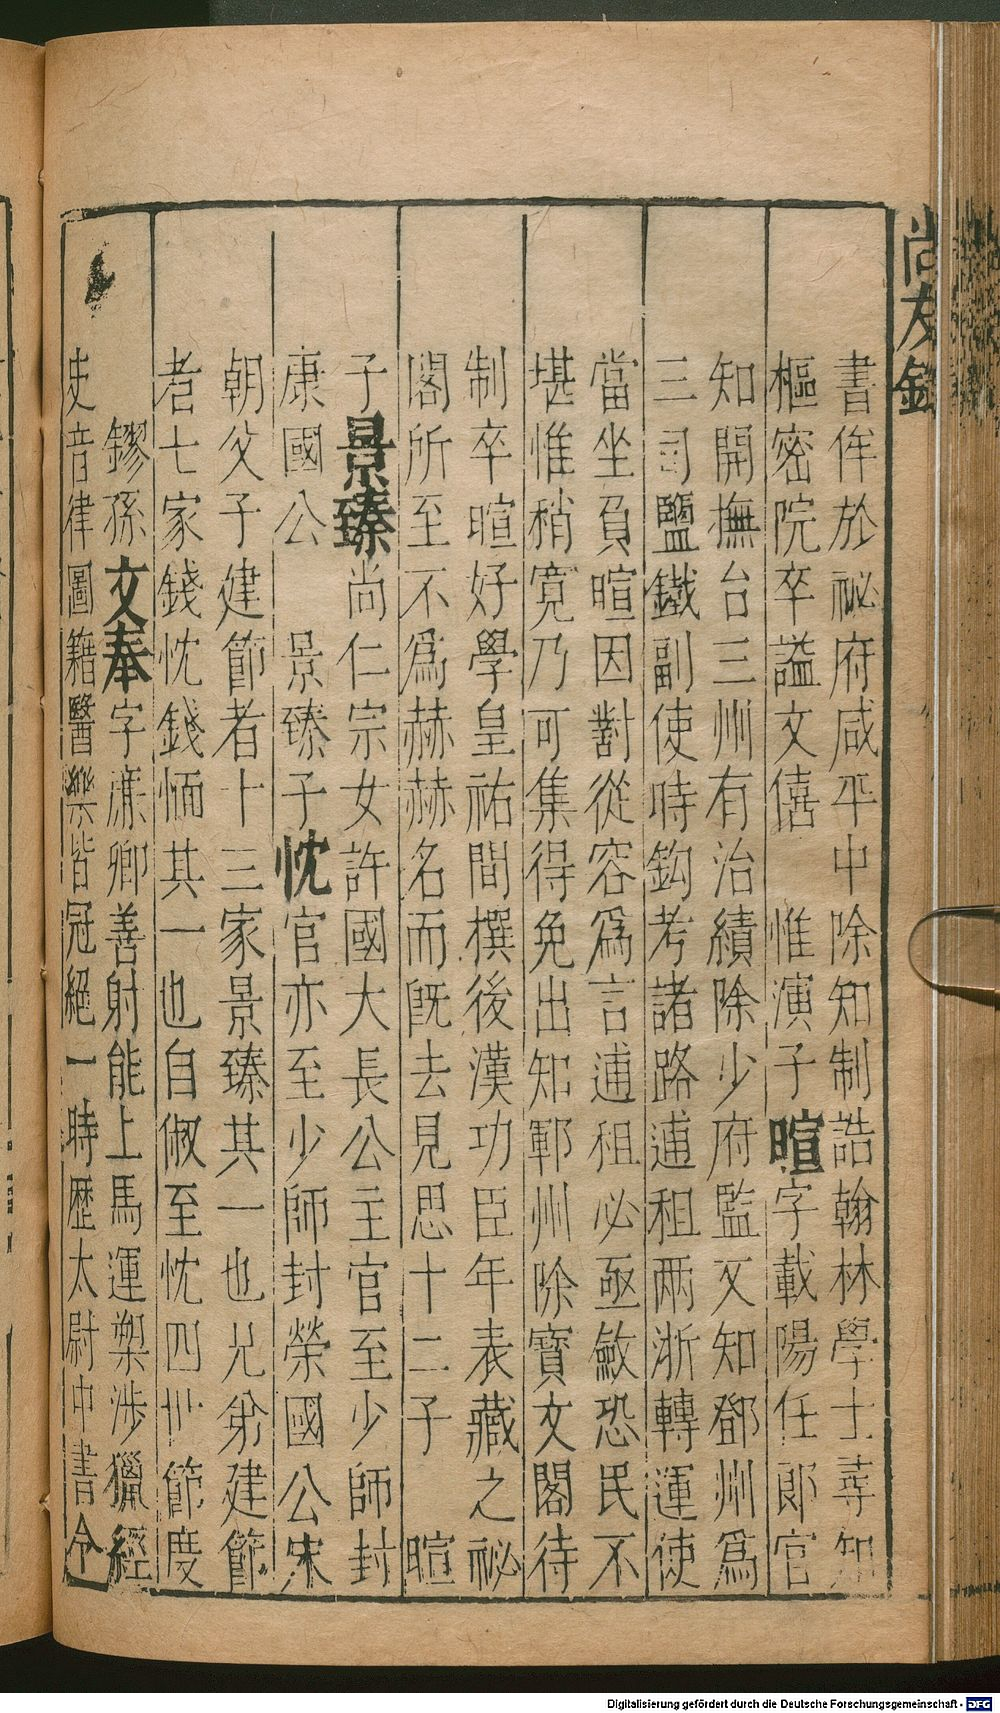 尚友錄
書侔於祕府咸平中除知制誥翰林學士尋知
樞密院卒謚文僖　惟演子暄字載陽任郎官
知開撫台三州有治績除少府監又知鄧州爲
三司鹽鐵副使時鈎考諸路逋租兩浙轉運使
當坐負暄因對從容爲言逋租必亟斂恐民不
堪惟稍寬乃可集得免出知鄆州除寳文閣待
制卒暄好學皇祐間撰後漢功臣年表藏之祕
閣所至不爲赫赫名而旣去見思十二子　暄
子景臻尚仁宗女許國大長公主官至少師封
康國公　景臻子忱官亦至少師封榮國公宋
朝父子建節者十三家景臻其一也兄弟建節
者七家錢忱錢愐其一也自俶至忱四世節度
鏐孫文奉字廉卿善射能上馬運槊涉獵經
史音律圖籍醫藥皆冠絕一時歷太尉中書令
Digitalisierung gefördert durch die Deutsche Forschungsgemeinschaft - DFG